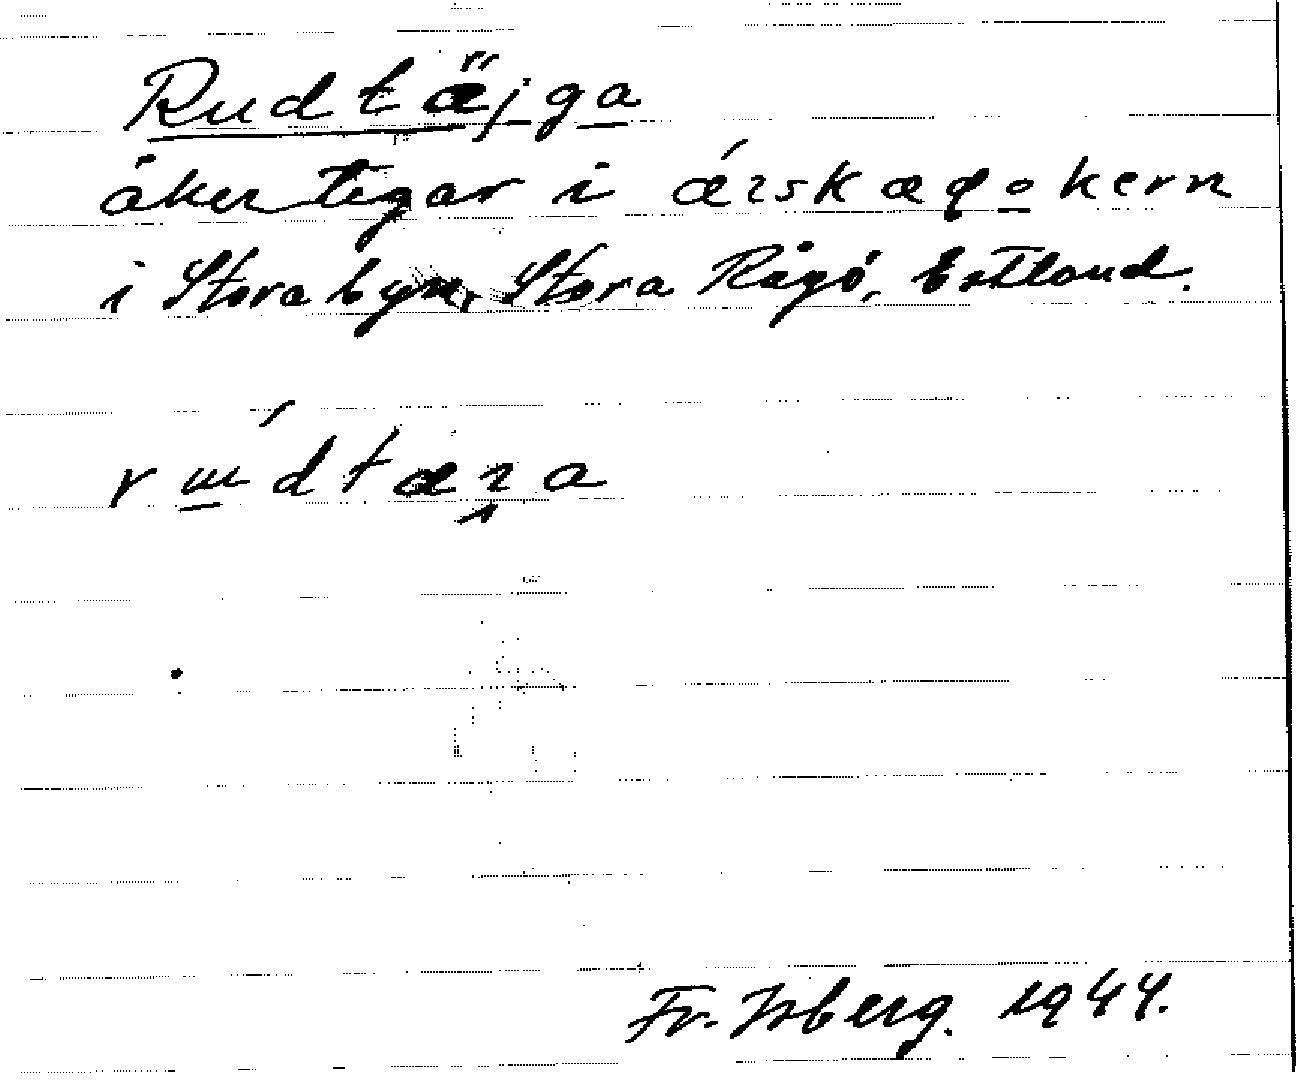 Rudtäjga
åkertegar i
i Storabyn, Stora Rågö, Estland.
Fr. Isberg. 1944.